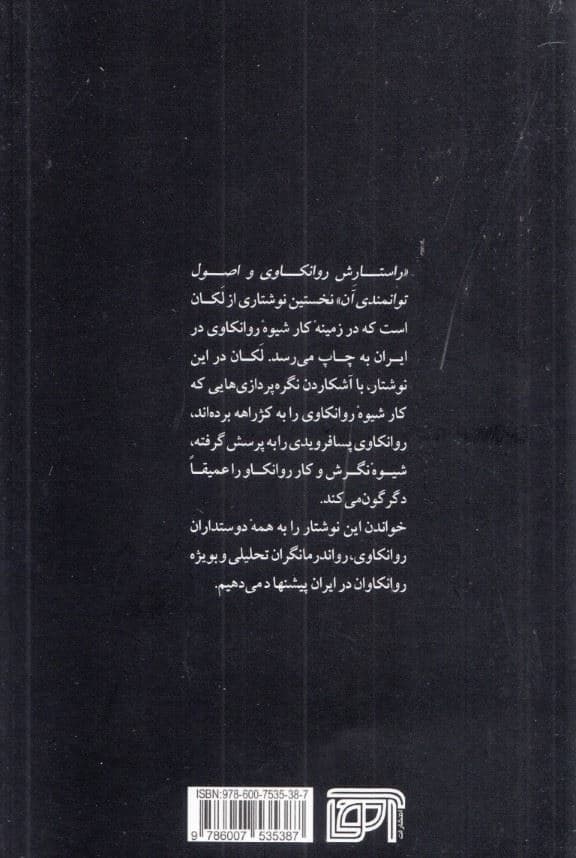 «راستارش روانکاوی و اصول
توانمندی آن» نخستین نوشتاری از لَکان
است که در زمینهٔ کار شیوهٔ روانکاوی در
ایران به چاپ می‌رسد. لَکان در این
نوشتار، با آشکاردن نگره‌پردازی‌هایی که
کار شیوهٔ روانکاوی را به کژراهه برده‌اند،
روانکاوی پسافرویدی را به پرسش گرفته،
شیوهٔ نگرش و کار روانکاو را عمیقاً
دگرگون می‌کند.
خواندن این نوشتار را به همهٔ دوستداران
روانکاوی، رواندرمانگران تحلیلی و بویژه
روانکاوان در ایران پیشنهاد می‌دهیم.
ISBN:978-600-7535-38-7
9 786007 535387
انتشارات